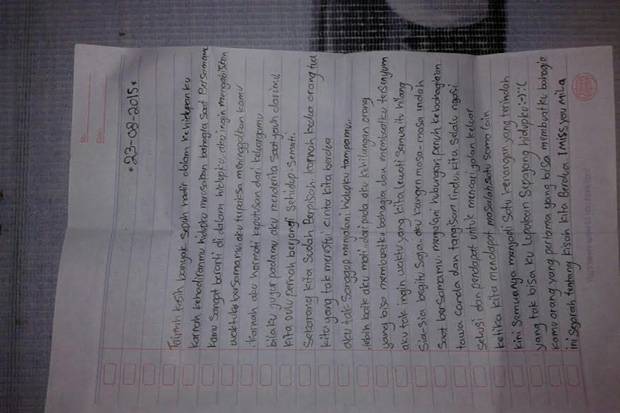 No:
Date:
• 23-08-2015 •
Terimah kasih banyak sudah hadir dalam kehidupanku
karnah kehadiranmu hidupku merasakan bahagia saat Bersamamu
kamu sangat berarti di dalam hidupku, aku ingin mengabiskan
waktuku bersamamu. aku terpaksa meninggalkan kamu
karnah aku hormati keputusan dari keluargamu
bilaku jujur padamu aku menderita saat jauh darimu
kita dulu pernah berjanji sehidup semati.
Sekarang kita sudah Berpisah karnah kedua orang tua
kita yang tak merestui cinta kita berdua
aku tak sanggup menjalani hidupku tampamu..
lebih baik aku mati dari pada aku kehilangan orang
yang bisa membuatku bahagia dan membuatku tersenyum
aku tak ingin waktu yang kita lewati semua itu hilang
Sia-sia begitu saja, aku kangen masa-masa indah
saat bersamamu. menjalani hubungan penuh kebahagiaan
tawa canda dan tangisan rindu. kita selalu ngasi
solusi dan pendapat untuk mencari jalan keluar
ketika kita mendapat masalah satu sama lain
kini semuanya menjadi satu kenangan yang terindah
yang tak bisa ku lupakan sepanjang hidupku
kamu orang yang pertama yang bisa membuatku bahagia
ini sejarah tentang kisah kita Berdua I miss you Mila